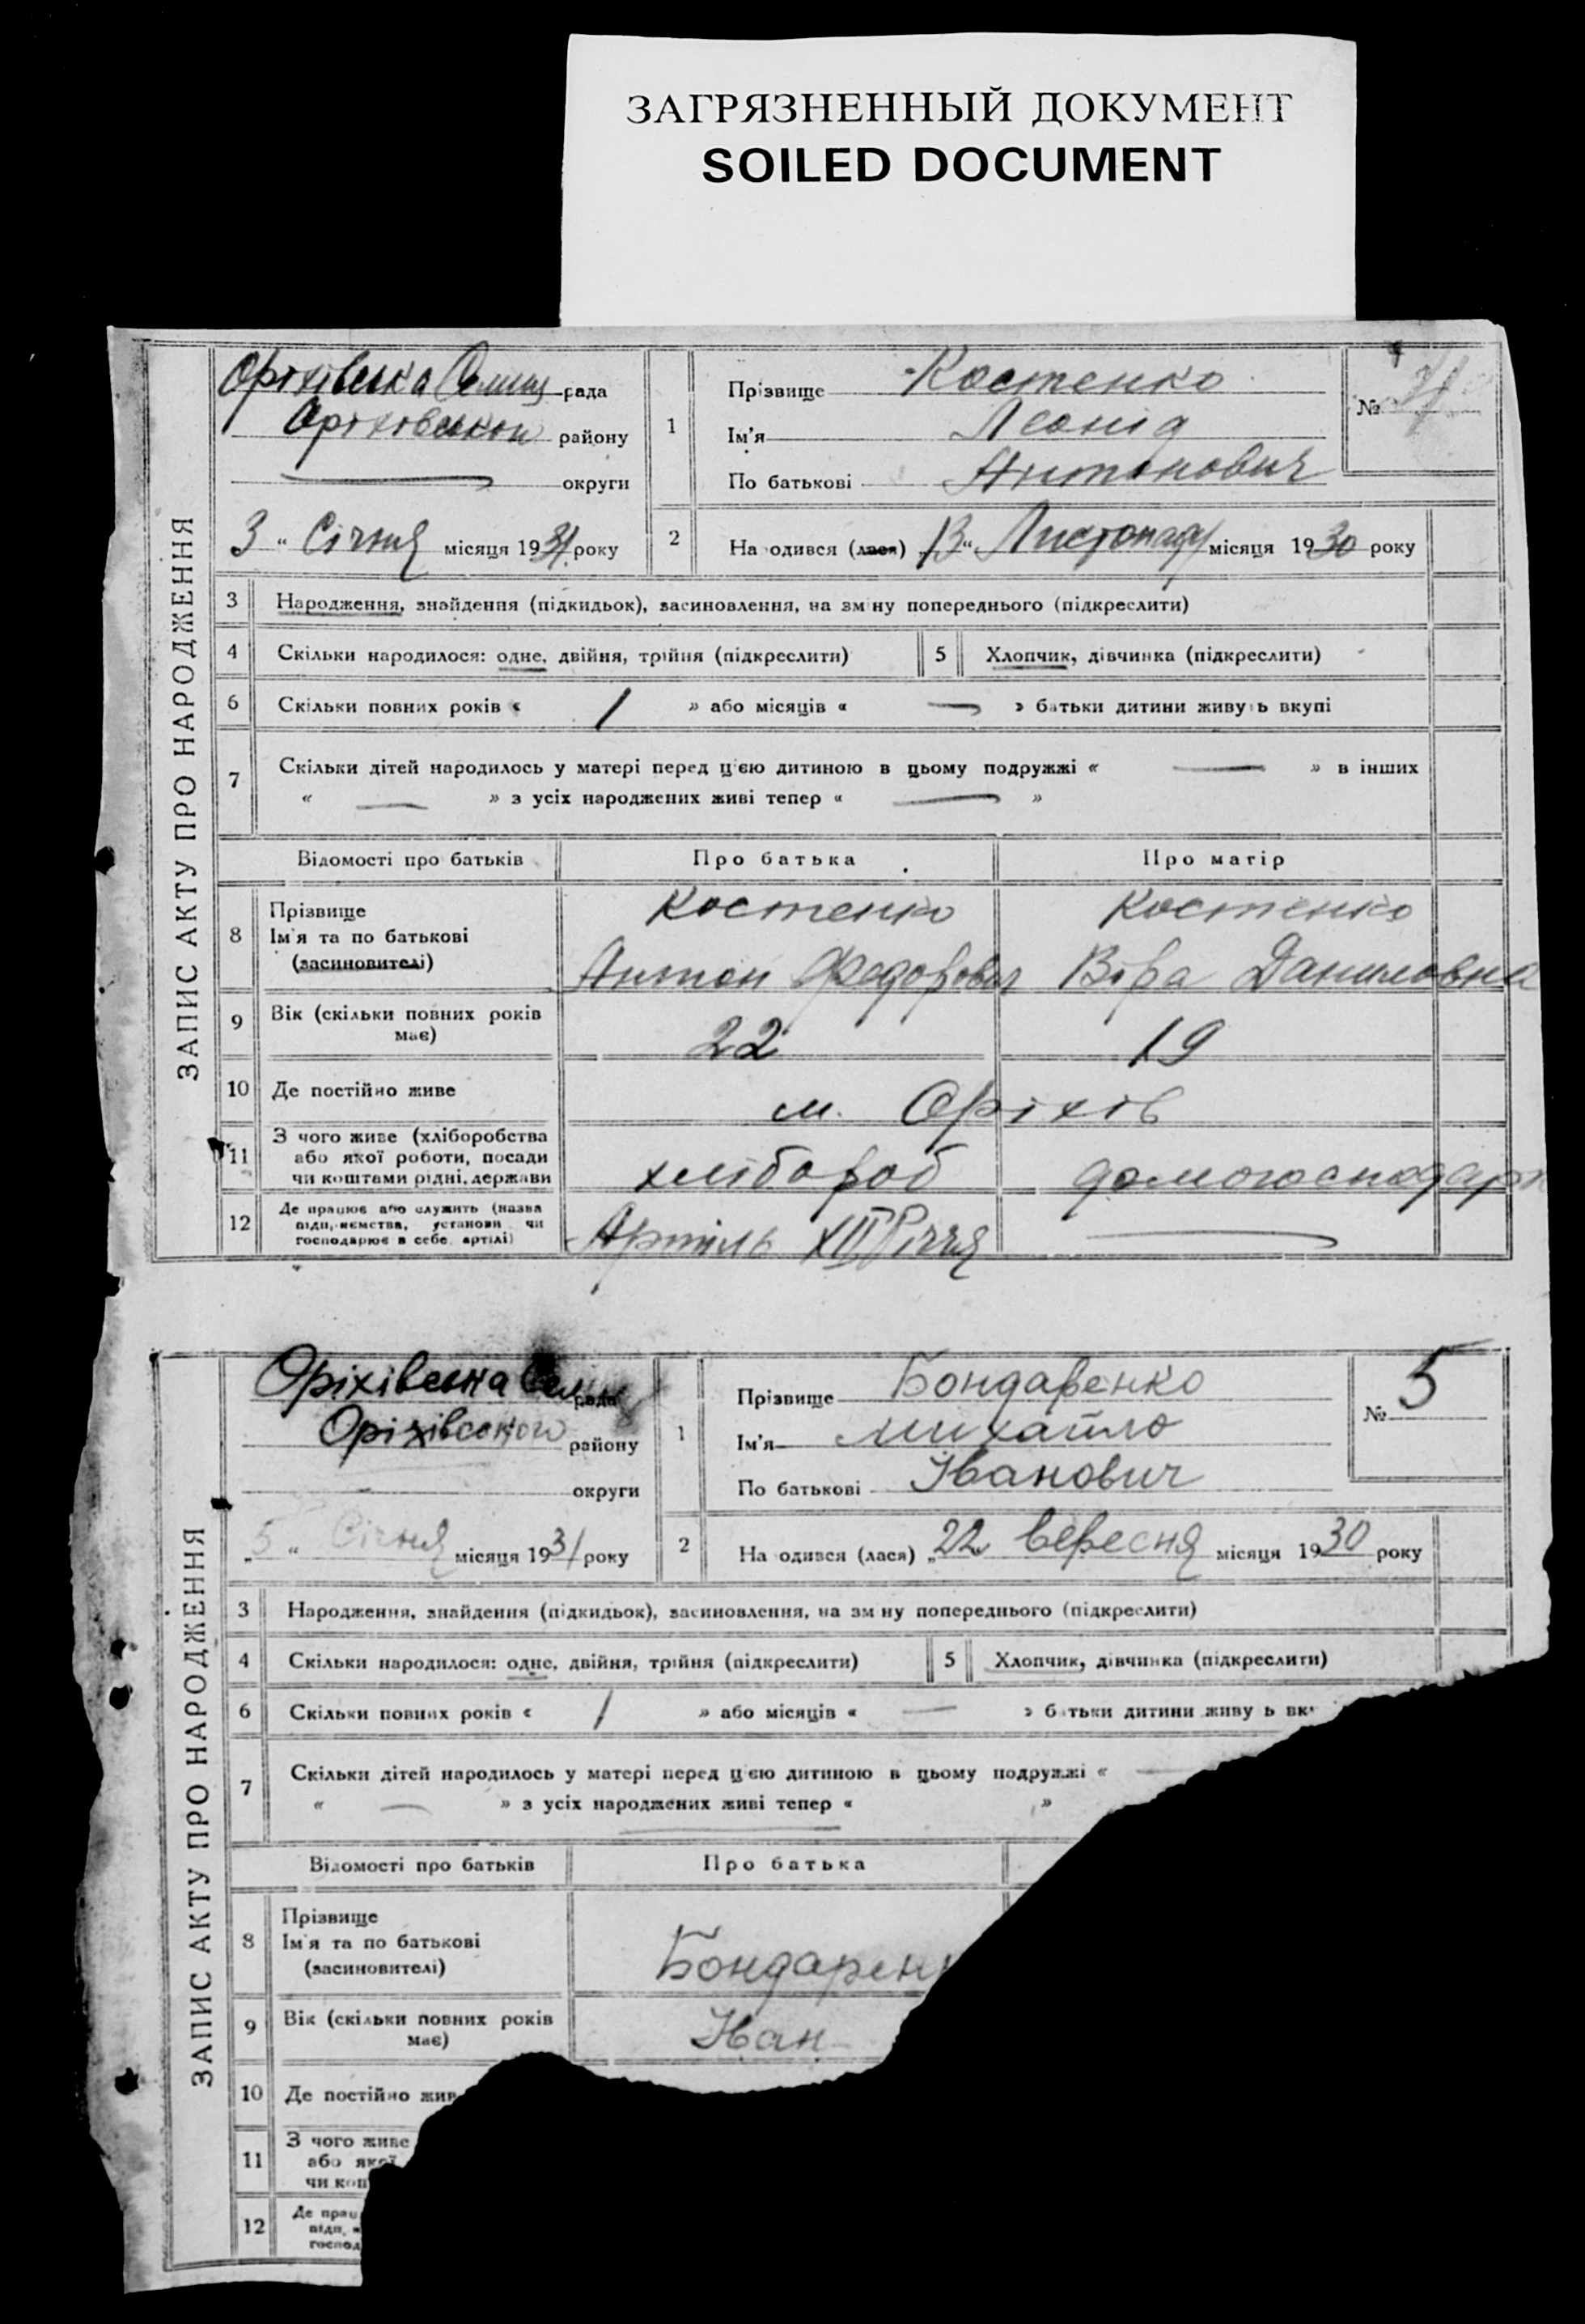 ЗАГРЯЗНЕННЫЙ ДОКУМЕНТ
SOILED DOCUMENT
ЗАПИС АКТУ ПРО НАРОДЖЕННЯ
Оріхівська Селищ рада
Оріхівської району
округи
3 " Січня місяця 1931 року
1
Прізвище Костенко
Ім'я Леонід
По батькові Антонович
№ 4
2
На одився (лася) 13 " Листопаду місяця 1930 року
3 Народження, знайдення (підкидьок), засиновлення, на зм ну попереднього (підкреслити)
4 Скільки народилося: одне, двійня, трійня (підкреслити) 5 Хлопчик, дівчинка (підкреслити)
6 Скільки повних років « 1 » або місяців « — » батьки дитини живуть вкупі
7 Скільки дітей народилось у матері перед цією дитиною в цьому подружжі « — » в інших
« — » з усіх народжених живі тепер « — »
Відомості про батьків Про батька Про матір
8 Прізвище
Ім'я та по батькові
(засиновителі)
Костенко Костенко
Антон Федорович Віра Даниловна
9 Вік (скільки повних років
має)
22 19
10 Де постійно живе м. Оріхів
11 З чого живе (хліборобства
або якої роботи, посади
чи коштами рідні, держави
хлібороб домогосподарк
12 Де працює або служить (назва
підп, иємства, установи чи
господарює в себе, артілі)
Артіль XIII Річчя —
ЗАПИС АКТУ ПРО НАРОДЖЕННЯ
Оріхівська Селищ рада
Оріхівського району
округи
„5 " Січня місяця 1931 року
1
Прізвище Бондаренко
Ім'я Михайло
По батькові Іванович
№ 5
2
На одився (лася) „22 вересня місяця 1930 року
3 Народження, знайдення (підкидьок), засиновлення, на зм ну попереднього (підкреслити)
4 Скільки народилося: одне, двійня, трійня (підкреслити) 5 Хлопчик, дівчинка (підкреслити)
6 Скільки повних років « 1 » або місяців « — » б тьки дитини живу ь вк
7 Скільки дітей народилось у матері перед цією дитиною в цьому подружжі « —
« — » з усіх народжених живі тепер « »
Відомості про батьків Про батька
8 Прізвище
Ім'я та по батькові
(засиновителі)
Бондарен
9 Вік (скільки повних років
має)
Іван
10 Де постійно жив
11 З чого живе
або якої
чи кош
12 Де прац
підп,
господ